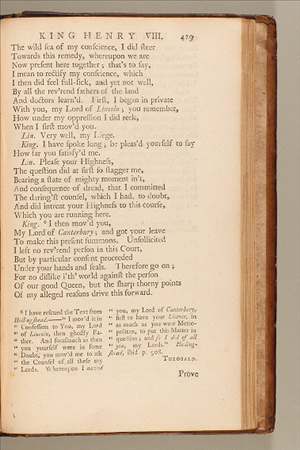 KING HENRY VIII. 419
The wild sea of my conscience, I did steer
Towards this remedy, whereupon we are
Now present here together; that's to say,
I mean to rectify my conscience, which
I then did feel full-sick, and yet not well,
By all the rev'rend fathers of the land
And doctors learn'd. First, I began in private
With you, my Lord of Lincoln; you remember,
How under my oppression I did reek,
When I first mov'd you.
Lin. Very well, my Liege.
King. I have spoke long; be pleas'd yourself to say
How far you satisfy'd me.
Lin. Please your Highness,
The question did at first so stagger me,
Bearing a state of mighty moment in't,
And consequence of dread, that I committed
The daring'st counsel, which I had, to doubt,
And did intreat your Highness to this course,
Which you are running here.
King. * I then mov'd you,
My Lord of Canterbury; and got your leave
To make this present summons. Unsollicited
I left no rev'rend person in this Court,
But by particular consent proceeded
Under your hands and seals. Therefore go on;
For no dislike i'th' world against the person
Of our good Queen, but the sharp thorny points
Of my alleged reasons drive this forward.
* I have rescued the Text from
Hollingshead.—" I mov'd it in
" Confession to You, my Lord
" of Lincoln, then ghostly Fa-
" ther. And forasmuch as then
" you yourself were in some
" Doubt, you mov'd me to ask
" the Counsel of all these my
" Lords. Whereupon I moved
" you, my Lord of Canterbury,
" first to have your Licence, in
" as much as you were Metro-
" politan, to put this Matter in
" question; and so I did of all
" you, my Lords." Holing-
shead, ibid. p. 508.
THEOBALD.
Prove